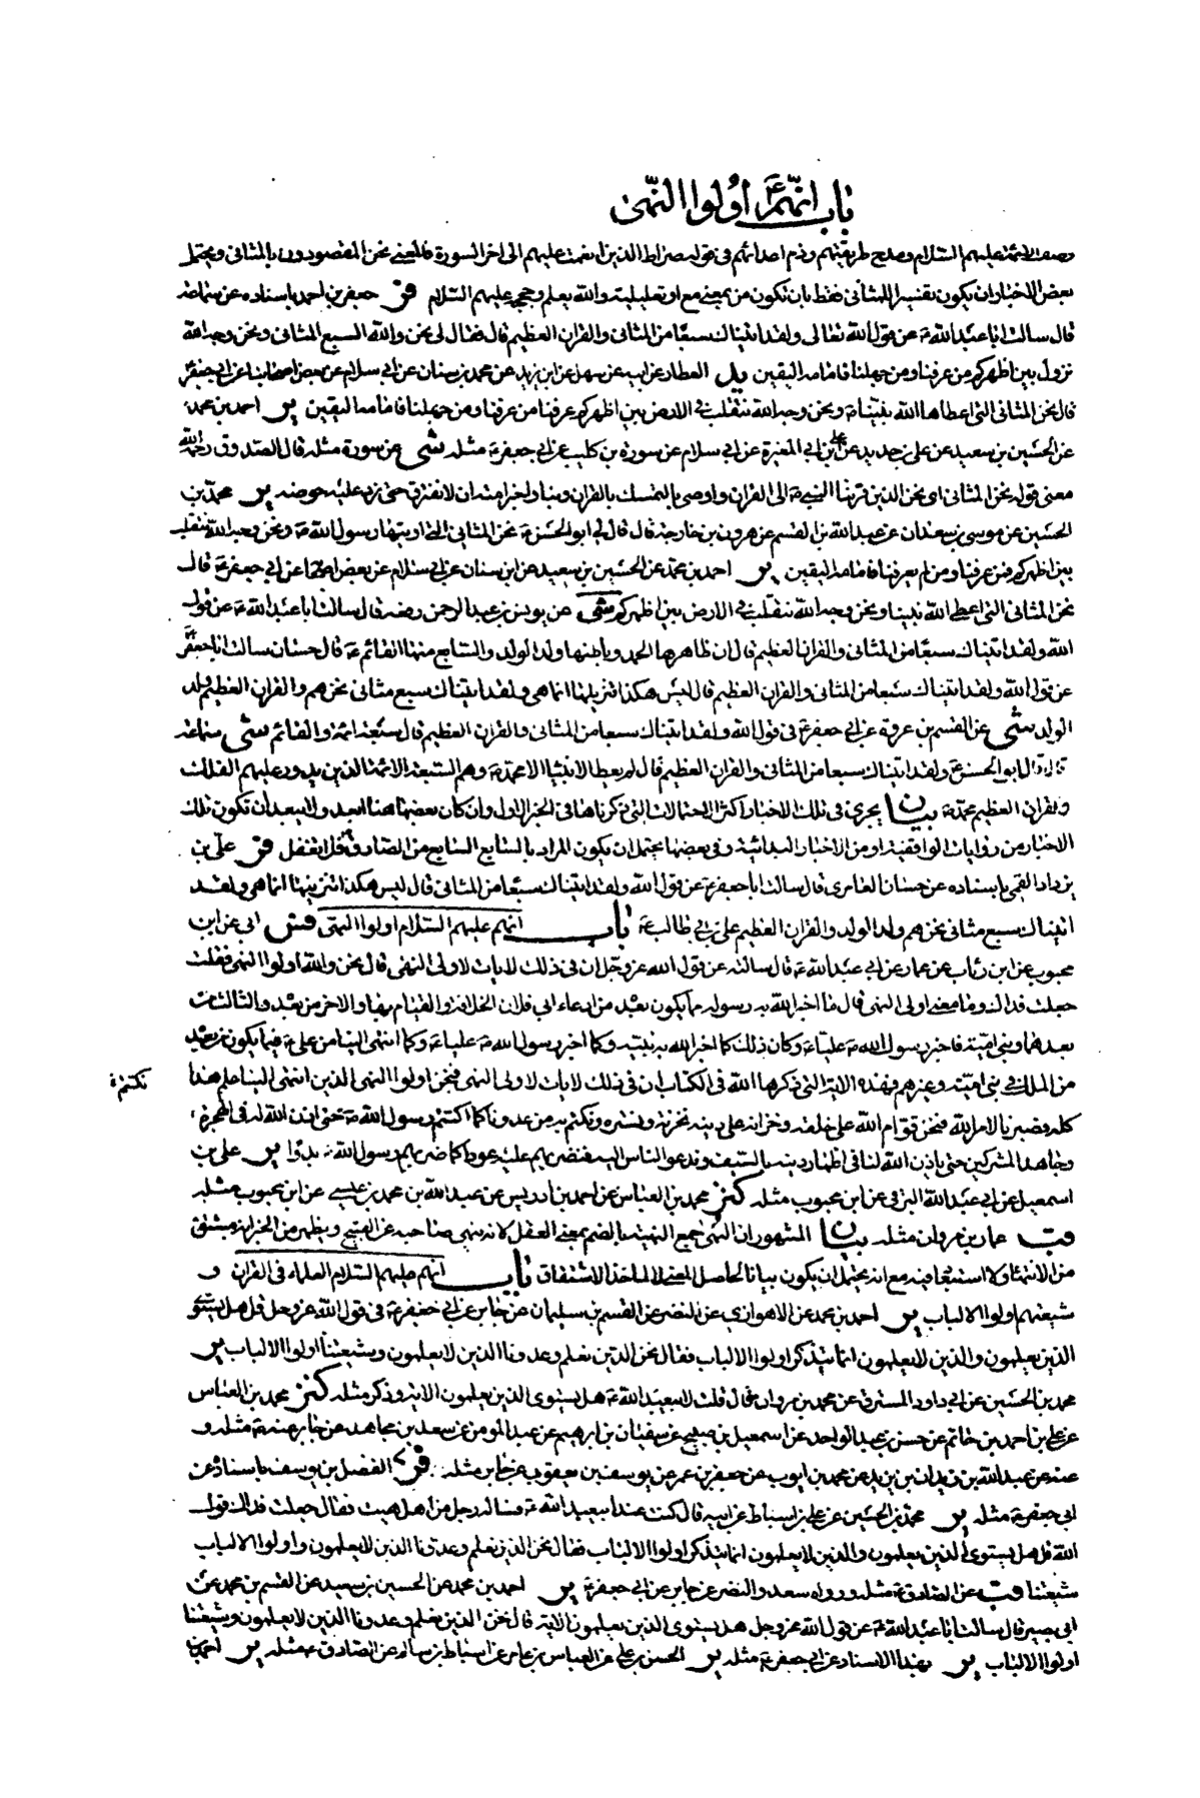 باب انهم ع اولوا النهى
وصف الائمة عليهم السلام ومدح طريقتهم وذم اعدائهم فى قوله صراط الذين انعمت عليهم الى اخر السورة فالمعنى نحن المقصودون بالمثانى ويحتمل
بعض الاخبار ان يكون تفسيرا للمثانى فقط بان تكون من بمعنى مع او تعليلية والله يعلم وحججه عليهم السلام فر جعفر بن احمد باسناده عن سماعة
قال سالت ابا عبد الله ع عن قول الله تعالى ولقد اتيناك سبعا من المثانى والقران العظيم قال فقال لى نحن والله السبع المثانى ونحن وجه الله
نزول بين اظهركم من عرفنا ومن جهلنا فامامه اليقين يد العطار عن ابيه عن سهل عن ابن يزيد عن محمد بن سنان عن ابى سلام عن بعض اصحابنا عن ابى جعفر ع
قال نحن المثانى التى اعطاها الله نبينا ص ونحن وجه الله نتقلب فى الارض بين اظهركم عرفنا من عرفنا ومن جهلنا فامامه اليقين ير احمد بن محمد
عن الحسين بن سعيد عن على بن حديد عن على بن ابى المغيرة عن ابى سلام عن سورة بن كليب عن ابى جعفر ع مثله شى عن سورة مثله قال الصدوق رحمه الله
معنى قوله نحن المثانى اى نحن الذين قرننا النبى ص الى القران واوصى بالتمسك بالقران وبنا واخبر امته ان لا نفترق حتى نرد عليه حوضه ير محمد بن
الحسين عن موسى بن سعدان عن عبد الله بن القسم عن هرون بن خارجة قال قال لى ابو الحسن ع نحن المثانى التى اوتيها رسول الله ص ونحن وجه الله نتقلب
بين اظهركم فمن عرفنا ومن لم يعرفنا فامامه اليقين ير احمد بن محمد عن الحسين بن سعيد عن ابن سنان عن ابى سلام عن بعض اصحابنا عن ابى جعفر ع قال
نحن المثانى التى اعطى الله نبينا ونحن وجه الله نتقلب فى الارض بين اظهركم شى عن يونس بن عبد الرحمن رفعه قال سالت ابا عبد الله ع عن قول
الله ولقد اتيناك سبعا من المثانى والقران العظيم قال ان ظاهرها الحمد وباطنها ولد الولد والسابع منها القائم ع قال حسان سالت ابا جعفر ع
عن قول الله ولقد اتيناك سبعا من المثانى والقران العظيم قال ليس هكذا تنزيلها انما هى ولقد اتيناك سبع مثانى نحن هم والقران العظيم ولد
الولد شى عن القسم بن عروة عن ابى جعفر ع فى قول الله ولقد اتيناك سبعا من المثانى والقران العظيم قال سبعة ائمة والقائم شى سماعة
قال قال ابو الحسن ع ولقد اتيناك سبعا من المثانى والقران العظيم قال لم يعط الانبياء الا محمد ص وهم السبعة الائمة الذين يدور عليهم الفلك
والقران العظيم محمد ص بيان يجرى فى تلك الاخبار اكثر الاحتمالات التى ذكرناها فى الخبر الاول وان كان بعضها هنا ابعد ولا يبعد ان تكون تلك
الاخبار من روايات الواقفية او من الاخبار البدائية وفى بعضها يحتمل ان يكون المراد بالسابع السابع من الصادق ع فلا تغفل فر على بن
يزداد القمى باسناده عن حسان العامرى قال سالت ابا جعفر ع عن قول الله ولقد اتيناك سبعا من المثانى قال ليس هكذا تنزيلها انما هى ولقد
اتيناك سبع مثانى نحن هم ولد الولد والقران العظيم على بن ابى طالب ع باب انهم عليهم السلام اولوا النهى فس ابى عن ابن
محبوب عن ابن رئاب عن عمار عن ابى عبد الله ع قال سالته عن قول الله عز وجل ان فى ذلك لايات لاولى النهى قال نحن والله اولوا النهى فقلت
جعلت فداك وما معنى اولى النهى قال ما اخبر الله به رسوله مما يكون بعده من ادعاء ابى فلان الخلافة والقيام بها والاخر من بعده والثالث من
بعدهما وبنى امية فاخبر رسول الله ص عليا ع وكان ذلك كما اخبر الله به نبيه وكما اخبر رسول الله ص عليا ع وكما انتهى الينا من على ع فيما يكون من بعده
من الملك فى بنى امية وغيرهم فهذه الاية التى ذكرها الله فى الكتاب ان فى ذلك لايات لاولى النهى فنحن اولوا النهى الذين انتهى الينا علم هذا
نكتمه
كله وصبرنا لامر الله فنحن قوام الله على خلقه وخزانه على دينه نخزنه ونستره ونكتتم به من عدونا كما اكتتم رسول الله ص حتى اذن الله له فى الهجرة
وجاهد المشركين حتى ياذن الله لنا فى اظهار دينه بالسيف وندعو الناس اليه فنضربهم عليه عودا كما ضربهم رسول الله ص بدوا ير على بن
اسمعيل عن ابى عبد الله البرقى عن ابن محبوب مثله كنز محمد بن العباس عن احمد بن ادريس عن عبد الله بن محمد بن عيسى عن ابن محبوب مثله
قب عمار بن مروان مثله بيان المشهور ان النهى جمع النهية بالضم بمعنى العقل لانه ينهى صاحبه عن القبيح ويظهر من الخبر انه مشتق
من الانتهاء ولا استبعاد فيه مع انه يحتمل ان يكون بيانا لحاصل المعنى لا لماخذ الاشتقاق باب انهم عليهم السلام العلماء فى القران و
شيعتهم اولوا الالباب ير احمد بن محمد عن الاهوازى عن النضر عن القسم بن سليمان عن جابر عن ابى جعفر ع فى قول الله عز وجل قل هل يستوى
الذين يعلمون والذين لا يعلمون انما يتذكر اولوا الالباب فقال نحن الذين نعلم وعدونا الذين لا يعلمون وشيعتنا اولوا الالباب ير
محمد بن الحسين عن ابى داود المسترق عن محمد بن مروان قال قلت لابى عبد الله ع هل يستوى الذين يعلمون الاية وذكر مثله كنز محمد بن العباس
عن على بن احمد بن حاتم عن حسن بن عبد الواحد عن اسمعيل بن صبيح عن سفيان بن ابرهيم عن عبد المومن عن سعد بن مجاهد عن جابر عنه ع مثله و
عنه عن عبد الله بن زيدان بن يزيد عن محمد بن ايوب عن جعفر بن عمر عن يوسف بن يعقوب عن جابر مثله فر الفضل بن يوسف باسناده عن
ابى جعفر ع مثله ير محمد بن الحسين عن على بن اسباط عن ابيه قال كنت عند ابى عبد الله ع فساله رجل من اهل هيت فقال جعلت فداك قول
الله قل هل يستوى الذين يعلمون والذين لا يعلمون انما يتذكر اولوا الالباب فقال نحن الذين نعلم وعدونا الذين لا يعلمون واولوا الالباب
شيعتنا قب عن الصادق ع مثله ورواه سعد والنضر عن جابر عن ابى جعفر ع ير احمد بن محمد عن الحسين بن سعيد عن القسم بن محمد عن
ابى بصير قال سالت ابا عبد الله ع عن قول الله عز وجل هل يستوى الذين يعلمون الاية قال نحن الذين نعلم وعدونا الذين لا يعلمون وشيعتنا
اولوا الالباب ير بهذا الاسناد عن ابى جعفر ع مثله ير الحسن بن على عن العباس بن عامر عن اسباط بن سالم عن الصادق ع مثله ير احمد بن